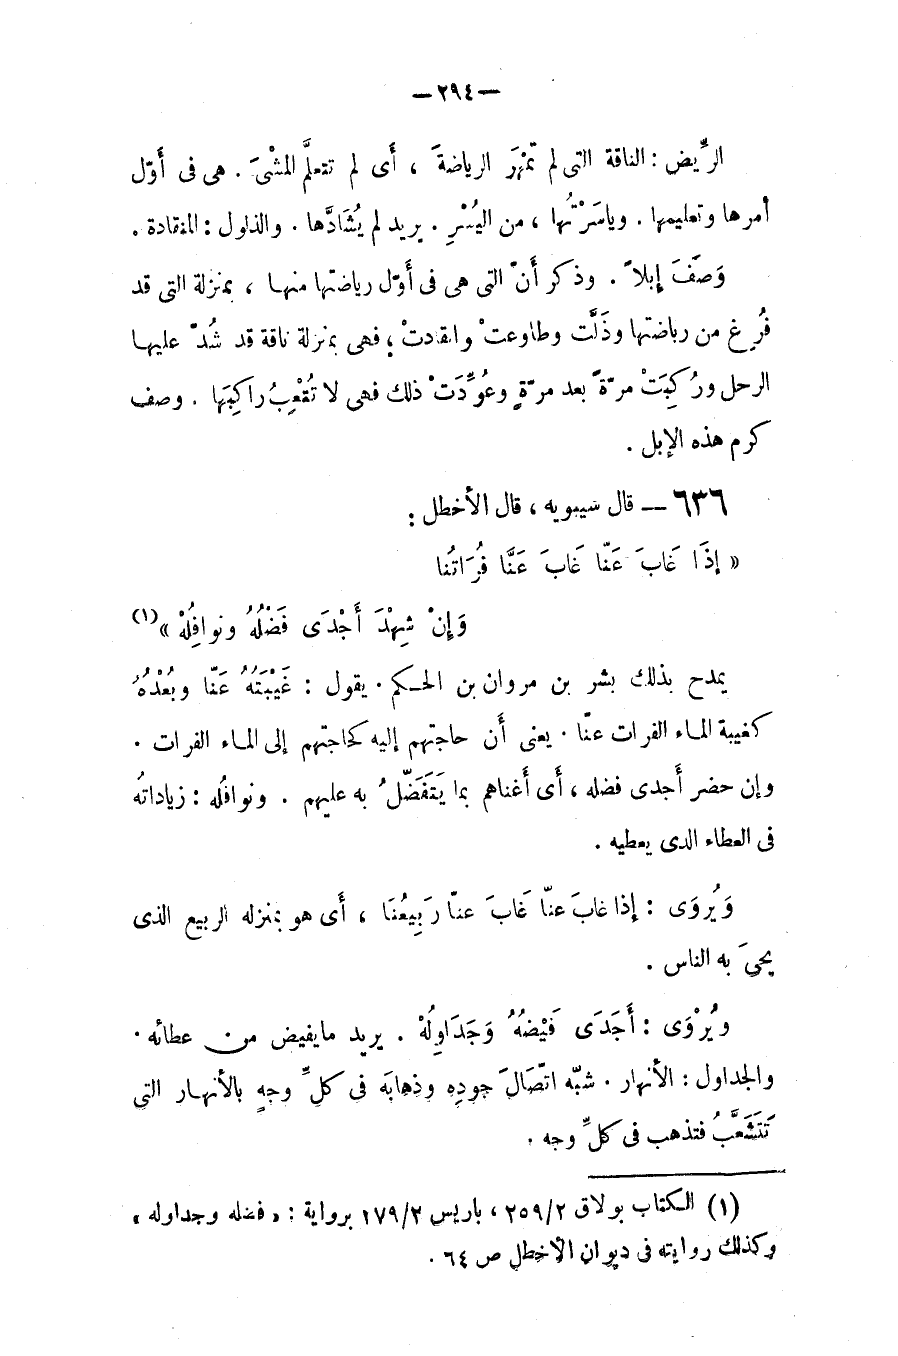 — ٢٩٤ —
الرِّيض : الناقة التى لم تَمْهَر الرياضةَ ، أى لم تتعلَّم المشْىَ . هى فى أَوّل
أمرها وتعليمها . وياسَرْتُها ، من اليُسْرِ . يريد لم يُشَادَّها . والذلول : المنقادة .
وَصَفَ إبلاً . وذكر أنّ التى هى فى أَوّل رياضتها منها ، بمنزلة التى قد
فُرِغ من رياضتها وذَلَّت وطاوعتْ وانقادتْ ؛ فهى بمنزلة ناقة قد شُدّ عليها
الرحل ورُكِبَتْ مرّةً بعد مرّةٍ وعُوِّدَتْ ذلك فهى لا تُتْعِبُ راكِبَها . وصف
كرم هذه الإبل .
٦٣٦ — قال سيبويه ، قال الأخطل :
« إذَا غَابَ عَنّا غَابَ عَنَّا فُرَاتُنا
وَإنْ شِهْدَ أَجْدَى فَضْلُهُ ونوافِلُهْ »(١)
يمدح بذلك بشر بن مروان بن الحكم . يقول : غَيْبَتُهُ عَنّا وبُعْدُهُ
كغيبة الماء الفرات عنّا . يعنى أن حاجتهم إليه كحاجتهم إلى الماء الفرات .
وإن حضر أجدى فضله ، أى أغناهم بما يَتَفَضّلُ به عليهم . ونوافلُه : زياداتُه
فى العطاء الذى يعطيه .
وَيُروَى : إذا غابَ عنّا غَابَ عنّا رَبِيعُنَا ، أى هو بمنزله الربيع الذى
يحيَ به الناس .
ويُرْوَى : أَجَدَى فَيْضُهُ وَجَدَاوِلُهْ . يريد مايفيض من عطائه .
والجداول : الأنهار . شبّه اتّصَالَ جودِه وذهابَه فى كلِّ وجهٍ بالأنهار التى
تَتَشَعَّبُ فتذهب فى كلِّ وجه .
(١) الكتاب بولاق ٢/٢٥٩ ، باريس ٢/١٧٩ برواية : « فضله وجداوله »
وكذلك روايته فى ديوان الأخطل ص ٦٤ .